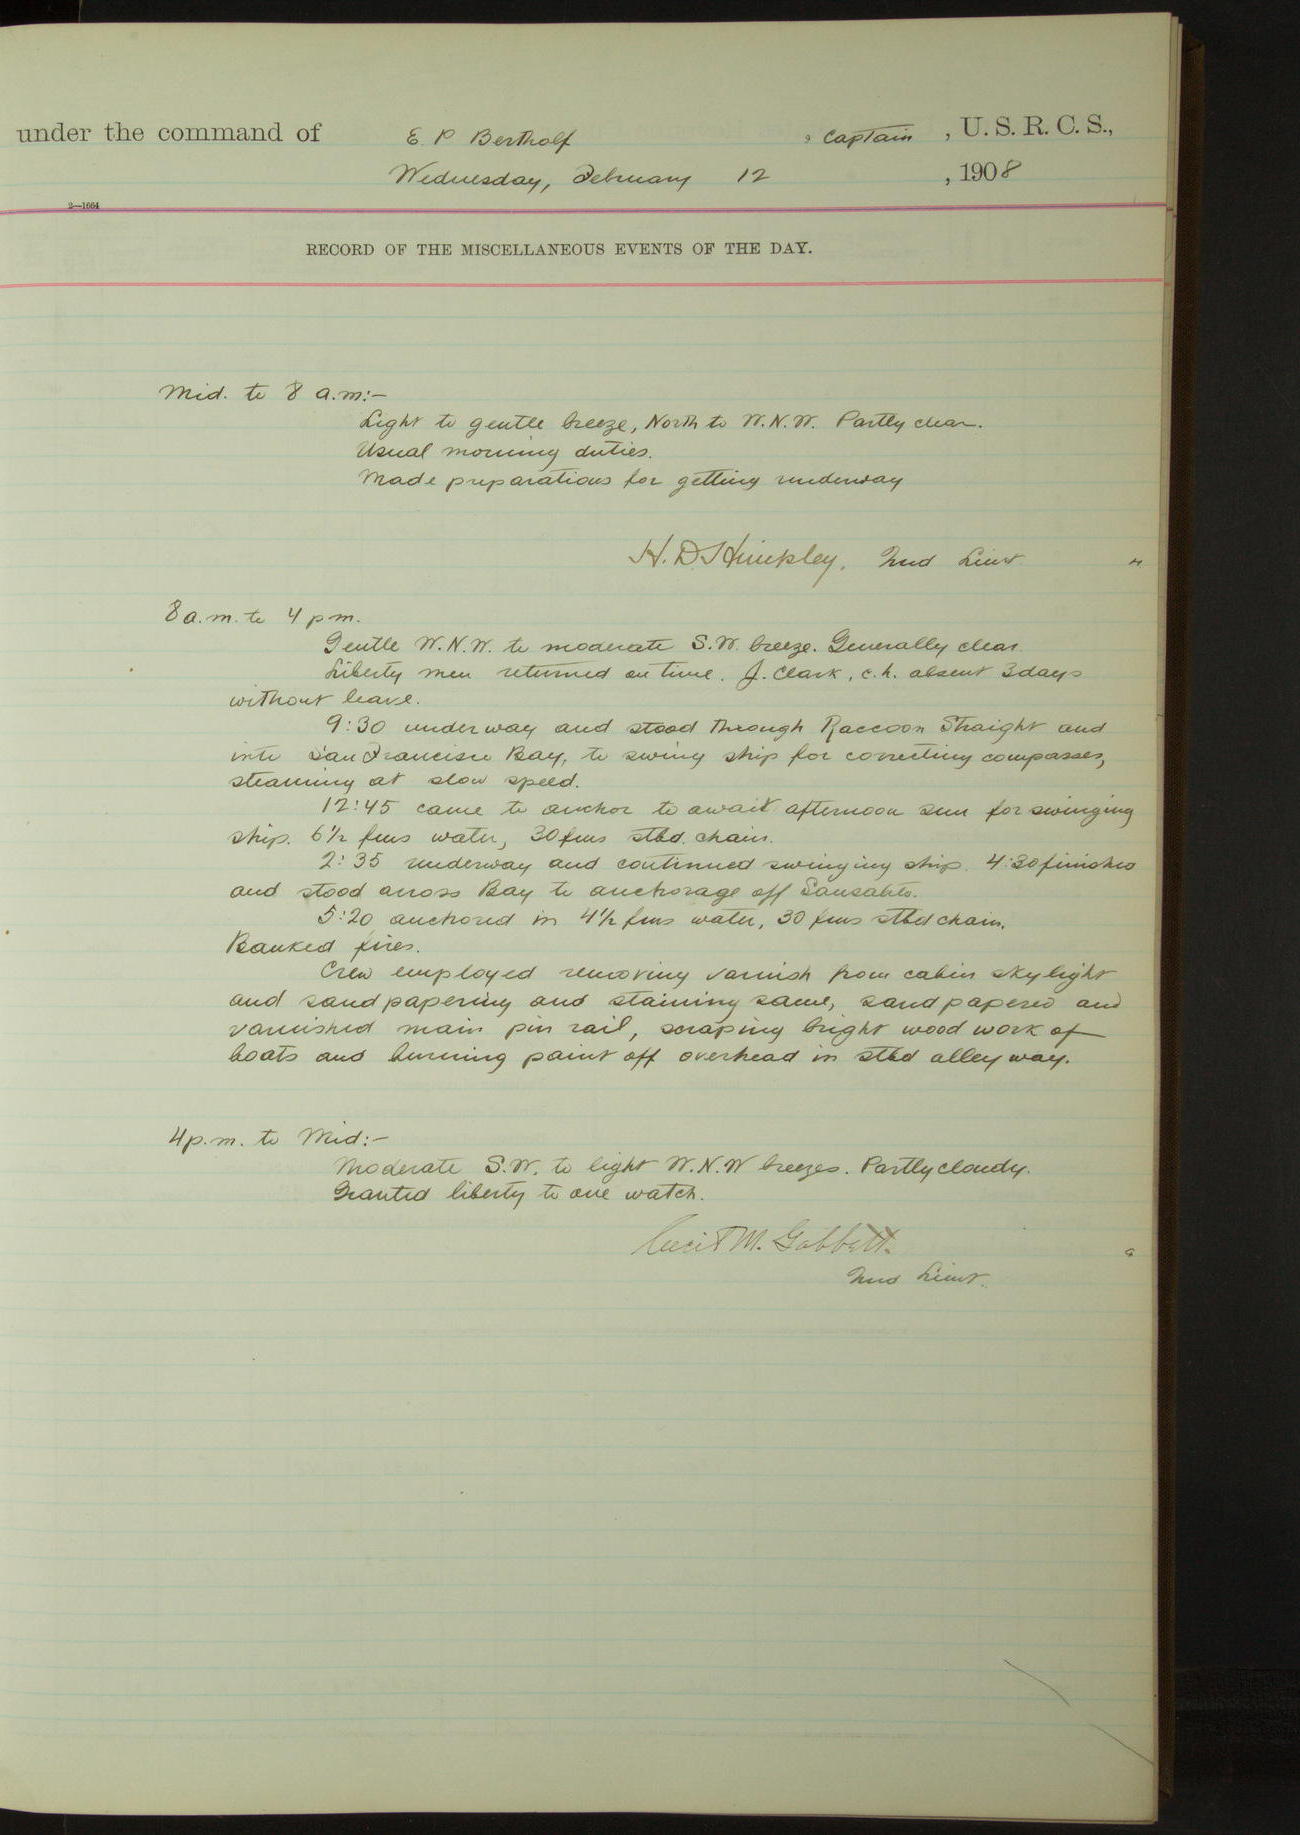 under the command of E. P. Bertholf, Captain, U. S. R. C. S.,
Wednesday, February 12, 1908
2—1664
RECORD OF THE MISCELLANEOUS EVENTS OF THE DAY.
Mid. to 8 a.m:-
Light to gentle breeze, North to W.N.W. Partly clear.
Usual morning duties.
Made preparations for getting underway
H. D. Hinckley, 2nd Lieut
8 a.m. to 4 p m.
Gentle W.N.W. to moderate S.W. breeze. Generally clear.
Liberty men returned on time. J. Clark, c.h. absent 3 days
without leave.
9:30 underway and stood through Raccoon Straight and
into San Francisco Bay, to swing ship for correcting compasses,
steaming at slow speed.
12:45 came to anchor to await afternoon sun for swinging
ship. 6½ fms water, 30 fms stbd. chain.
2:35 underway and continued swinging ship. 4:30 finished
and stood across Bay to anchorage off Sausalito.
5:20 anchored in 4½ fms water, 30 fms stbd chain.
Banked fires.
Crew employed removing varnish from cabin skylight
and sandpapering and staining same, sandpapered and
varnished main pin rail, scraping bright wood work of
boats and burning paint off overhead in stbd alley way.
4 p.m. to Mid:-
Moderate S.W. to light W.N.W breezes. Partly cloudy.
Granted liberty to one watch.
Cecil M. Gabbett.
2nd Lieut.